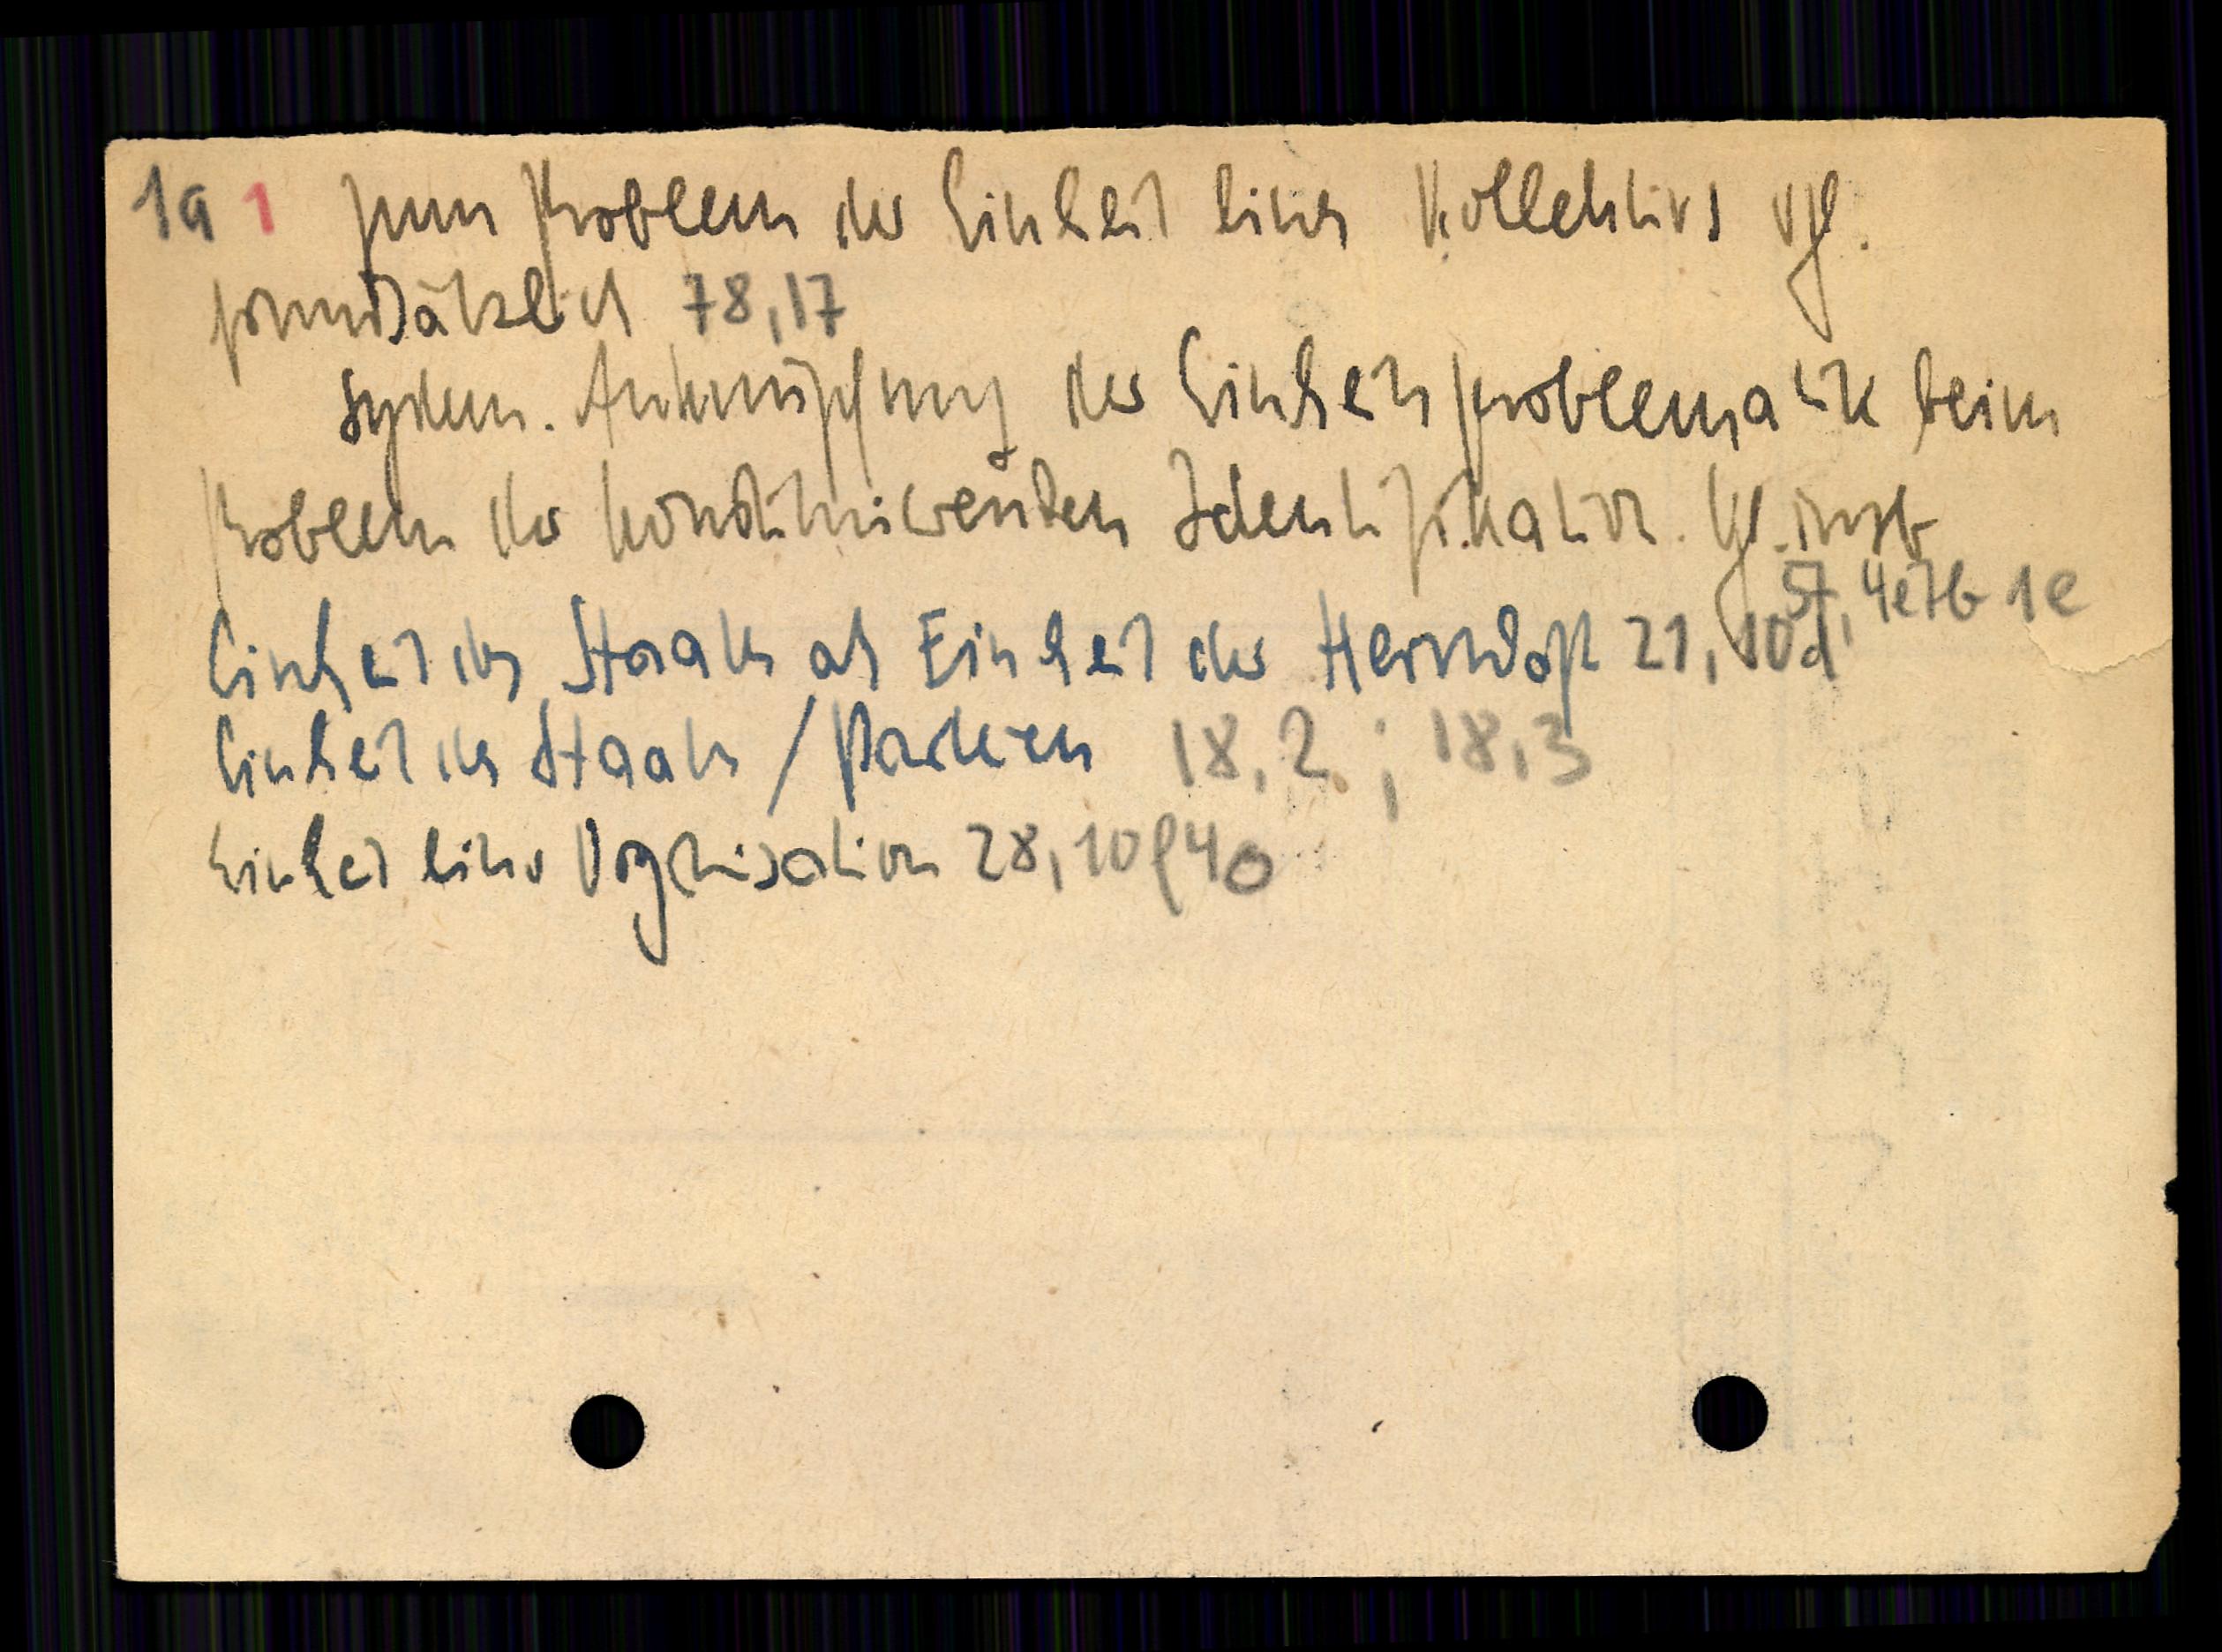 1a 1 zum Problem der Einheit eines Kollektivs vgl.
grundsätzlich 78,17
System. Anknüpfung der Einheitsproblematik beim
Problem der konstituierenden Identifikation. Vgl. insb
57,4e7b1e
Einheit des Staates als Einheit der Herrschaft 21,10d
Einheit des Staates / Parteien 18,2 ; 18,3
Einheit einer Organisation 28,10f40